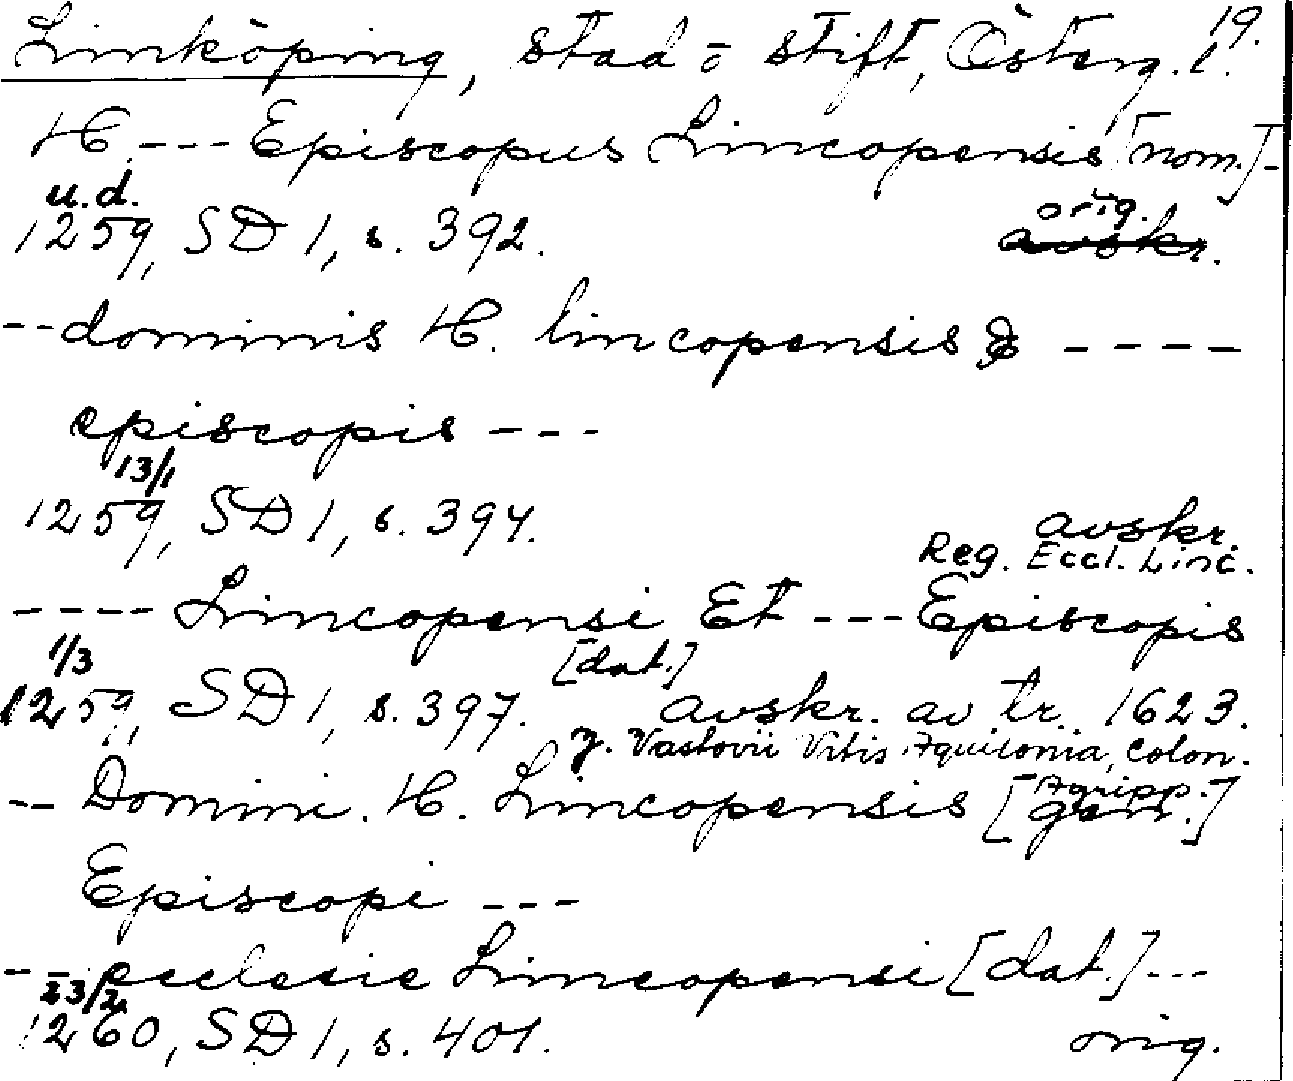 19.
Linköping, stad o stift, Österg. l.
H. --- Episcopus Lincopensis [nom.] -
u.d. orig.
1259, SD 1, s. 392. avskr.
-- dominis H. lincopensis & ----
episcopis ---
13/1
1259, SD 1, s. 394. avskr.
Reg. Eccl. Linc.
---- Lincopensi Et --- Episcopis
1/3 [dat.]
1259, SD 1, s. 397. avskr. av tr. 1623.
J. Vastovii Vitis Aquilonia, Colon.
Agripp.
-- Domini. H. Lincopensis [gen.]
Episcopi ---
-- ecclesie Lincopensi [dat.] ---
23/2
1260, SD 1, s. 401. orig.